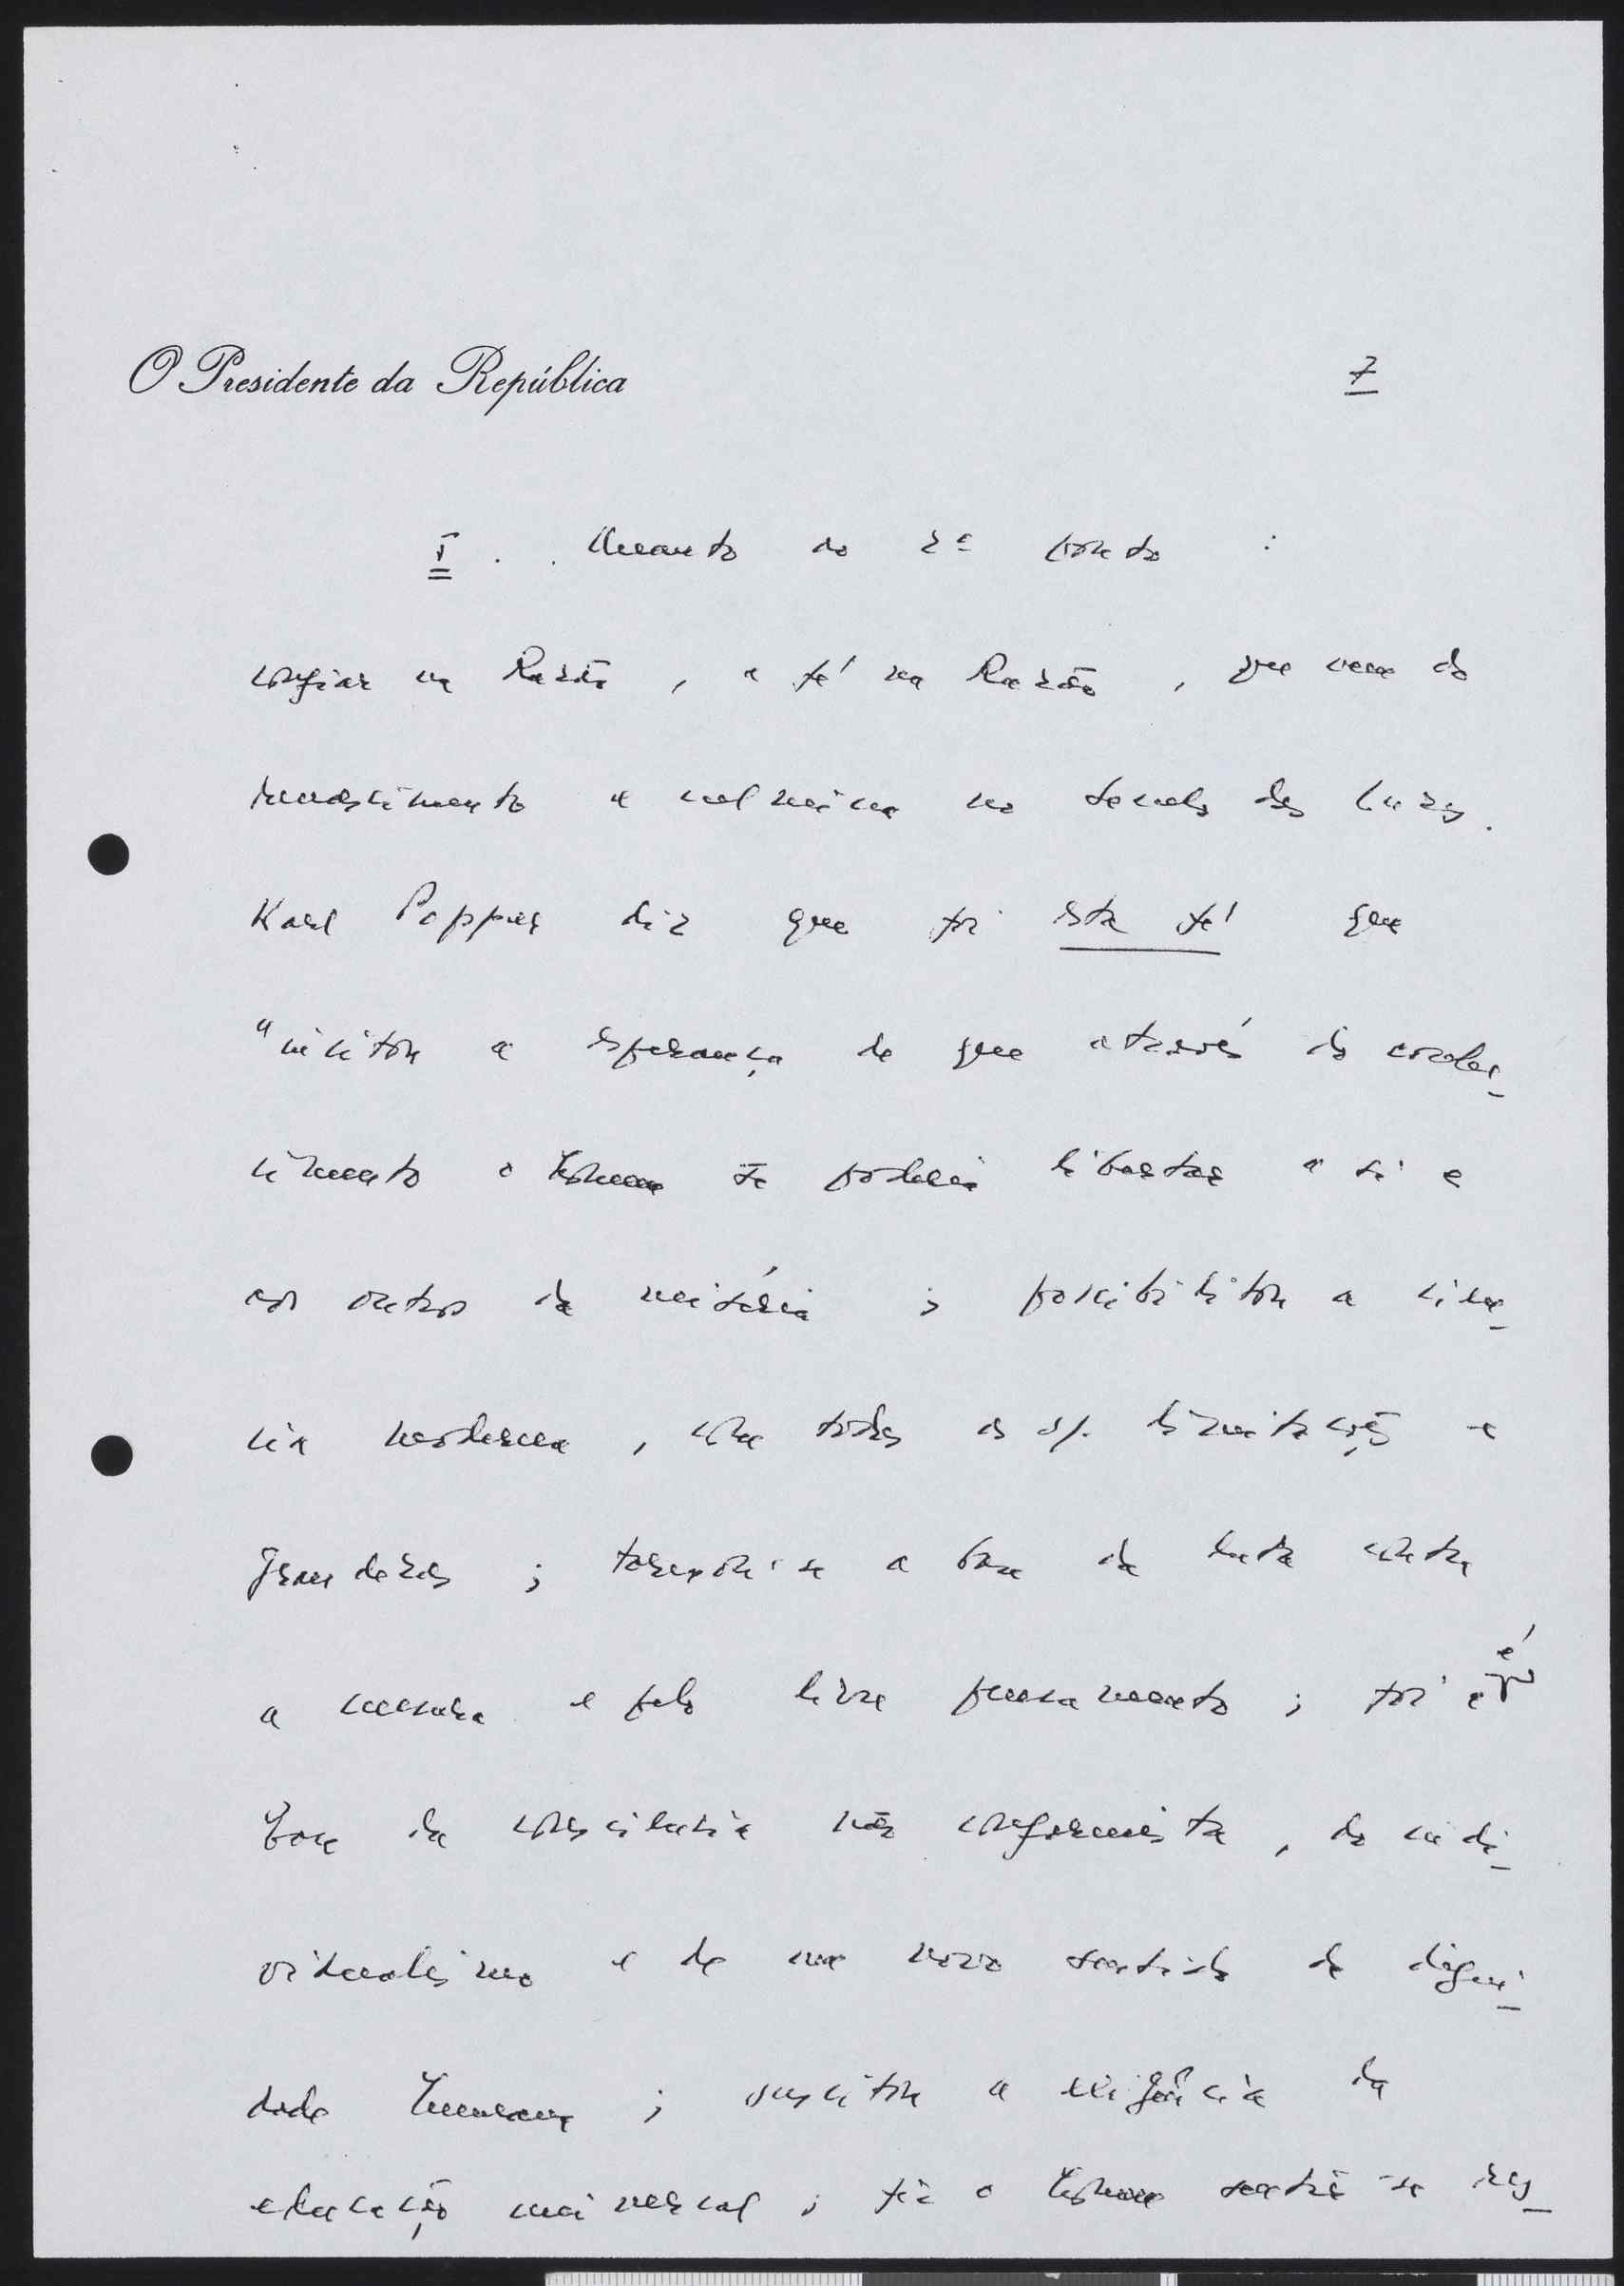 O Presidente da República
7
I. . Quanto ao 2º ponto :
confiar na Razão , a fé na Razão , que vem do
renascimento e culmina no seculo das luzes.
Karl Popper diz que foi esta fé que
"incitou a esperança de que através do conhe_
cimento o homem se poderia libertar a si e
aos outros da miséria ; possibilitou a ciên_
cia moderna , com todas as s/. limitações e
grandezas ; tornou-se a base da luta contra
a censura e pelo livre pensamento ; foi é a
base da consciência não conformista , do indi_
vidualismo e de um novo sentido da digni_
dade humana ; suscitou a exigência da
educação universal ; fez o homem sentir-se res_